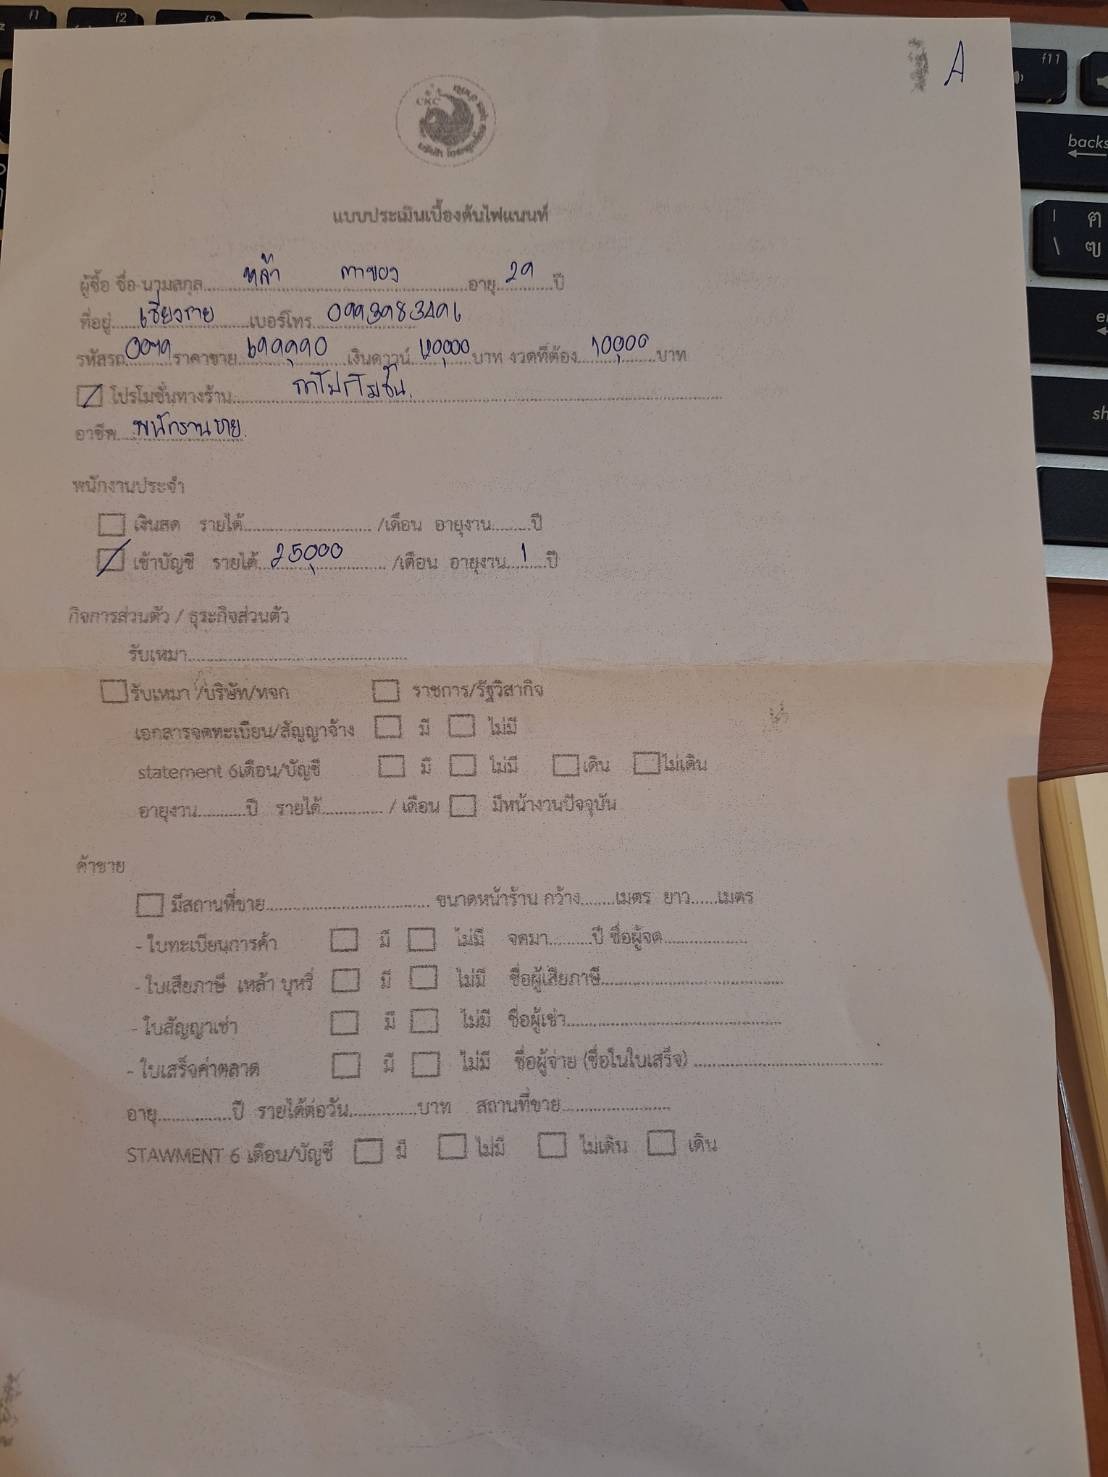 A
แบบประเมินเบื้องต้นไฟแนนท์
ผู้ซื้อ ชื่อ-นามสกุล หล้า ตาของ อายุ 29 ปี
ที่อยู่ เชียงราย เบอร์โทร
รหัสรถ 0079 ราคาขาย 699,990 เงินดาวน์ 40,000 บาท งวดที่ต้อง 10,000 บาท
โปรโมชั่นทางร้าน
อาชีพ พนักงานขาย
พนักงานประจำ
เงินสด รายได้ /เดือน อายุงาน ปี
เข้าบัญชี รายได้ 25,000 /เดือน อายุงาน 1 ปี
กิจการส่วนตัว / ธุระกิจส่วนตัว
รับเหมา
รับเหมา /บริษัท/หจก ราชการ/รัฐวิสากิจ
เอกสารจดทะเบียน/สัญญาจ้าง มี ไม่มี
statement 6เดือน/บัญชี มี ไม่มี เดิน ไม่เดิน
อายุงาน ปี รายได้ / เดือน มีหน้างานปัจจุบัน
ค้าขาย
มีสถานที่ขาย ขนาดหน้าร้าน กว้าง เมตร ยาว เมตร
- ใบทะเบียนการค้า มี ไม่มี จดมา ปี ชื่อผู้จด
- ใบเสียภาษี เหล้า บุหรี่ มี ไม่มี ชื่อผู้เสียภาษี
- ใบสัญญาเช่า มี ไม่มี ชื่อผู้เช่า
- ใบเสร็จค่าตลาด มี ไม่มี ชื่อผู้จ่าย (ชื่อในใบเสร็จ)
อายุ ปี รายได้ต่อวัน บาท สถานที่ขาย
STAWMENT 6 เดือน/บัญชี มี ไม่มี ไม่เดิน เดิน